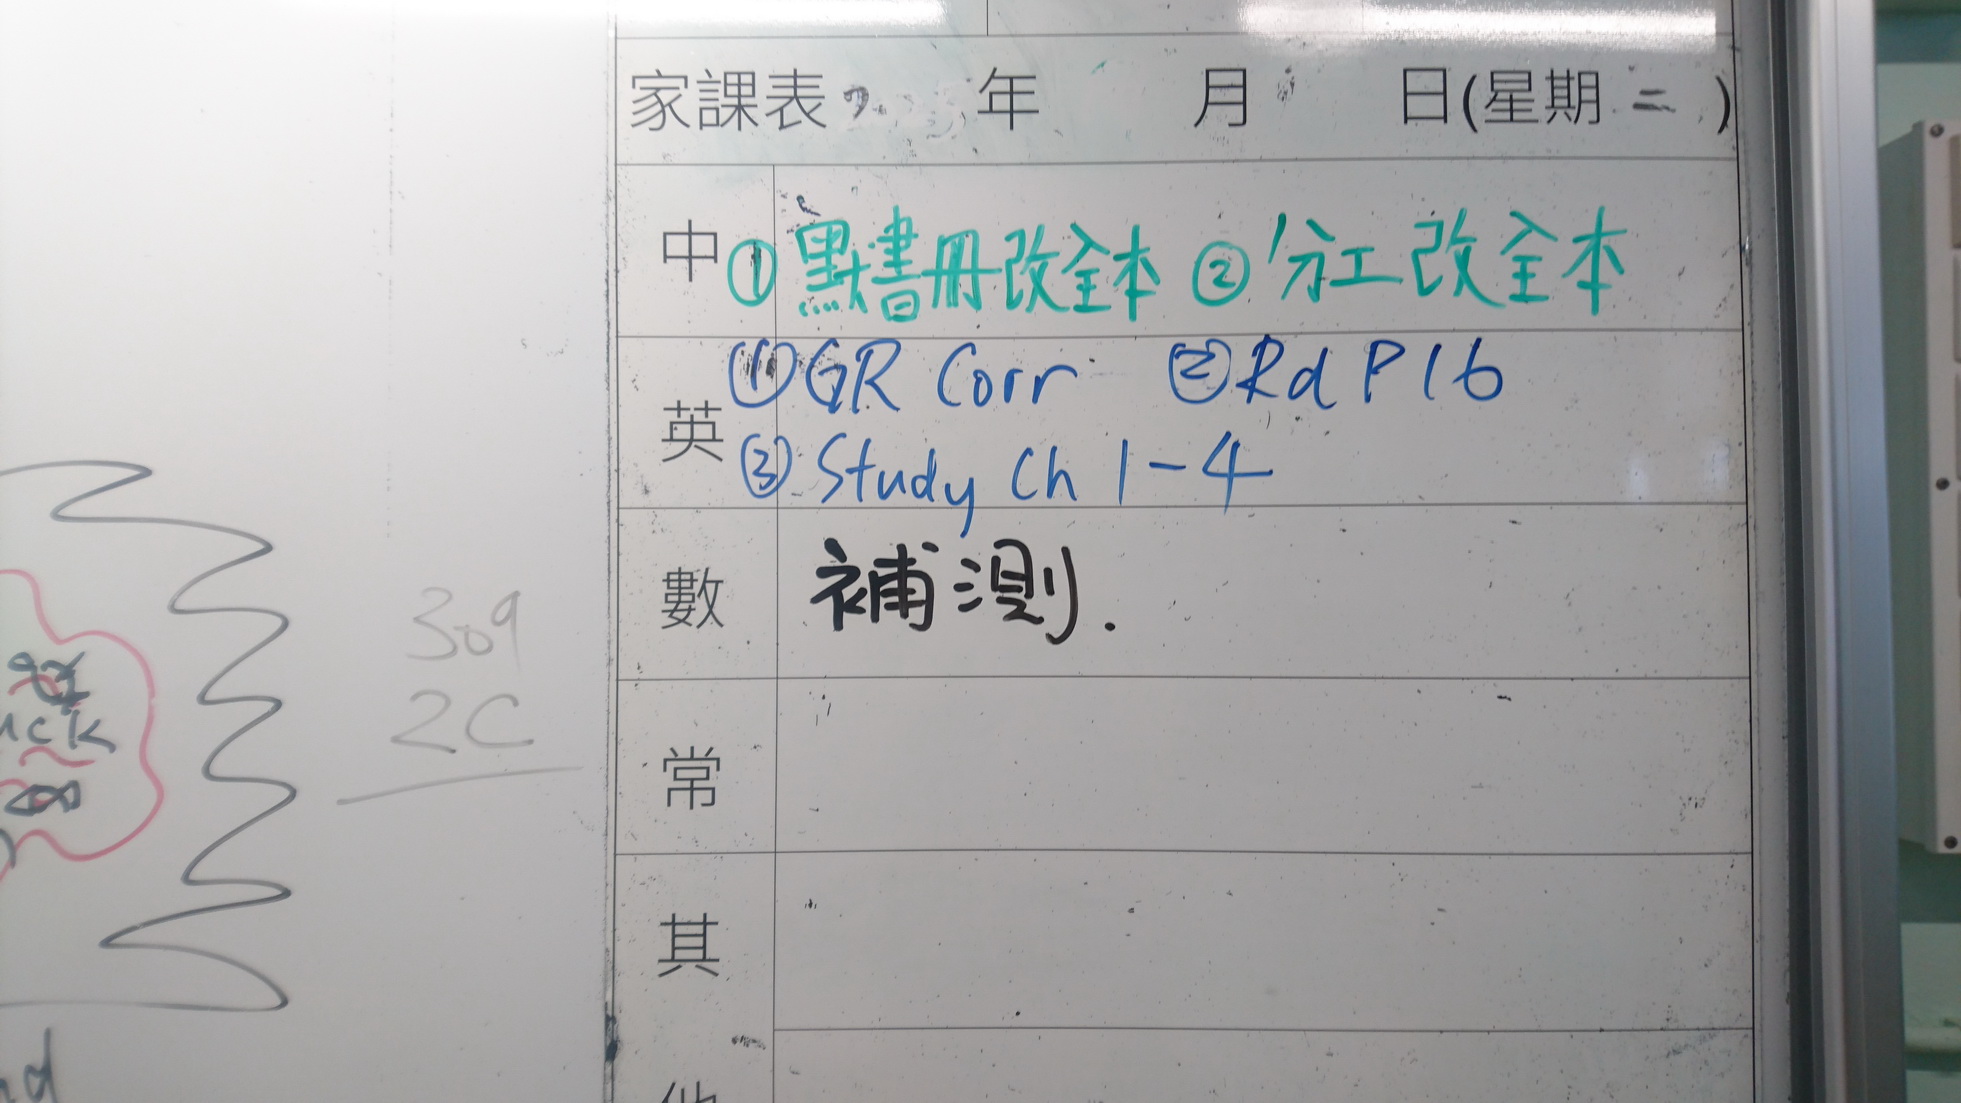 家課表 年 月 日(星期二)
中 ①點書冊改全本 ②分工改全本
英 ①GR Corr ②Rd P16
③Study Ch 1-4
數 補測.
常
其
他
309
2C
uck
nd